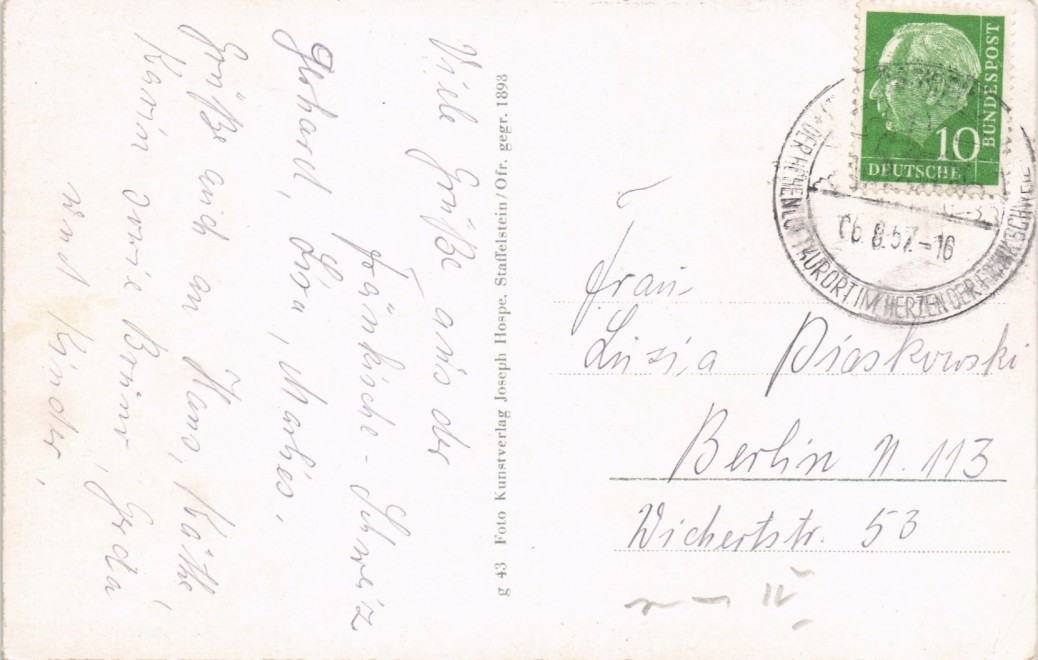 Viele Grüße aus der
Fränkische-Schweiz
Gerhard, Lisa, Marlies.
Grüße auch an Hans, Käthe,
Karin sowie Benno, Gerda
und Kinder.
g 43 Foto Kunstverlag Joseph Hospe, Staffelstein/Ofr. gegr. 1893
BUNDESPOST
10
DEUTSCHE
DER HÖHENLUFTKURORT IM HERZEN DER FRÄNK. SCHWEIZ
06.8.57.-16
Frau
Luzia Piaskowski
Berlin N. 113
Wichertstr. 53